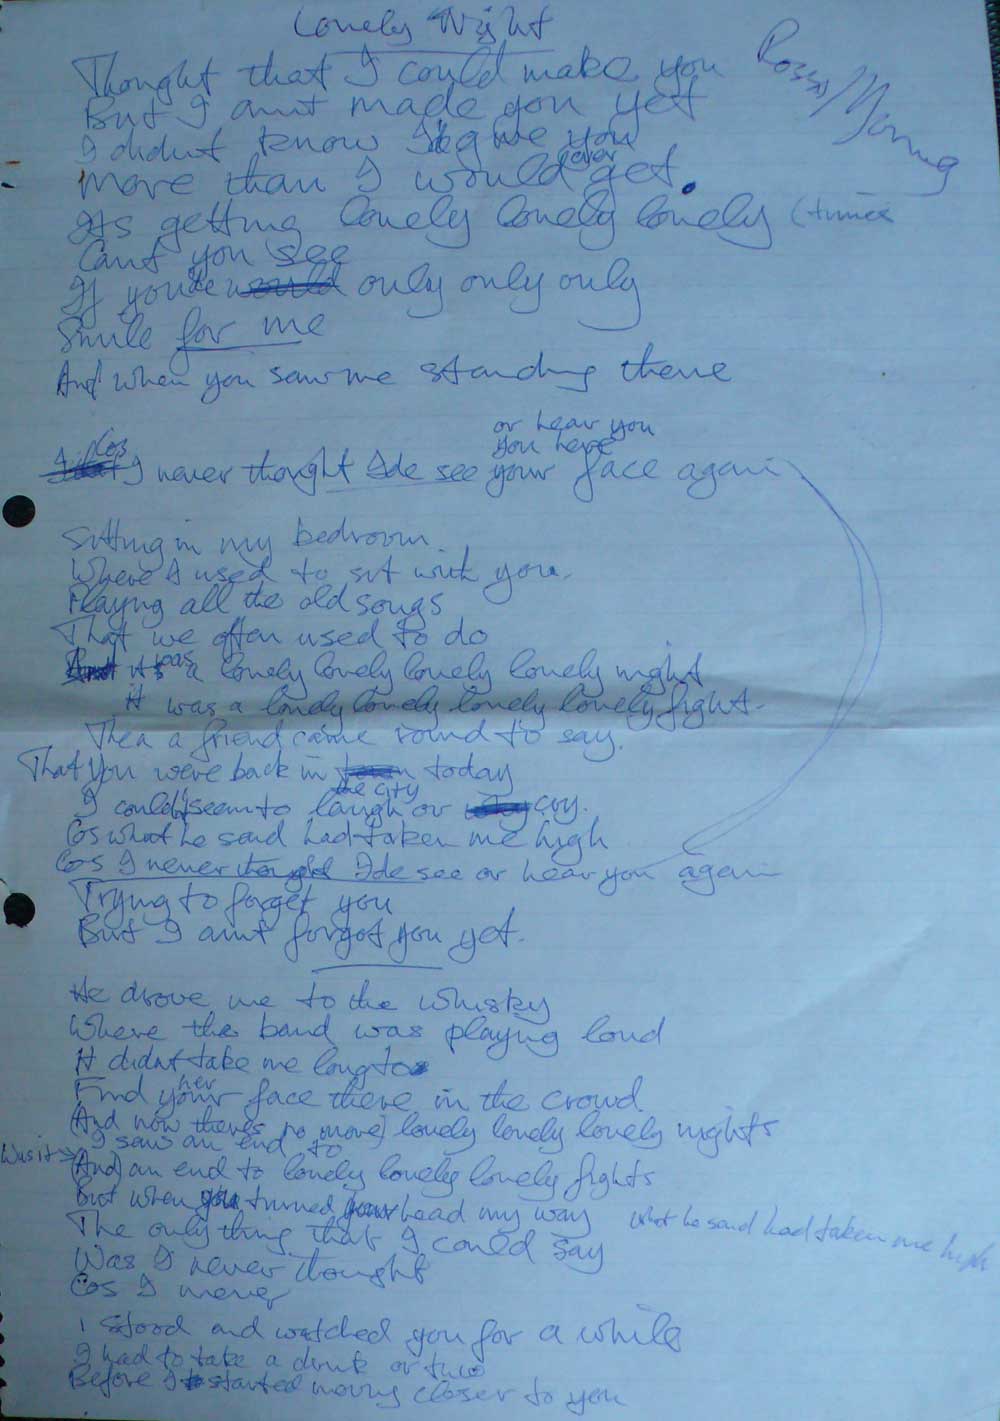 Lonely Night
Rossi/Young
Thought that I could make you
But I aint made you yet
I didnt know I'd give you
ever
more than I would get.
Its getting lonely lonely lonely (times
Cant you see
If you'de would only only only
Smile for me
And when you saw me standing there
or hear you
you here
Cos
I never thought Ide see your face again
Sitting in my bedroom.
Where I used to sit with you.
Playing all the old songs
That we often used to do
And it was a lonely lonely lonely lonely night
it was a lonely lonely lonely lonely fight.
Then a friend came round to say.
That you were back in town today
the city
I couldn't seem to laugh or cry.
Cos what he said had taken me high
Cos I never thought Ide see or hear you again
Trying to forget you
But I aint forgot you yet.
He drove me to the whisky
Where the band was playing loud
It didnt take me long to
her
Find your face there in the crowd
(And now theres no more) lonely lonely lonely nights
I saw an end to
Was it →
(And) an end to lonely lonely lonely fights
But when you turned your head my way
what he said had taken me high
The only thing that I could say
Was I never thought
Cos I never
I stood and watched you for a while
I had to take a drink or two
Before I started moving closer to you